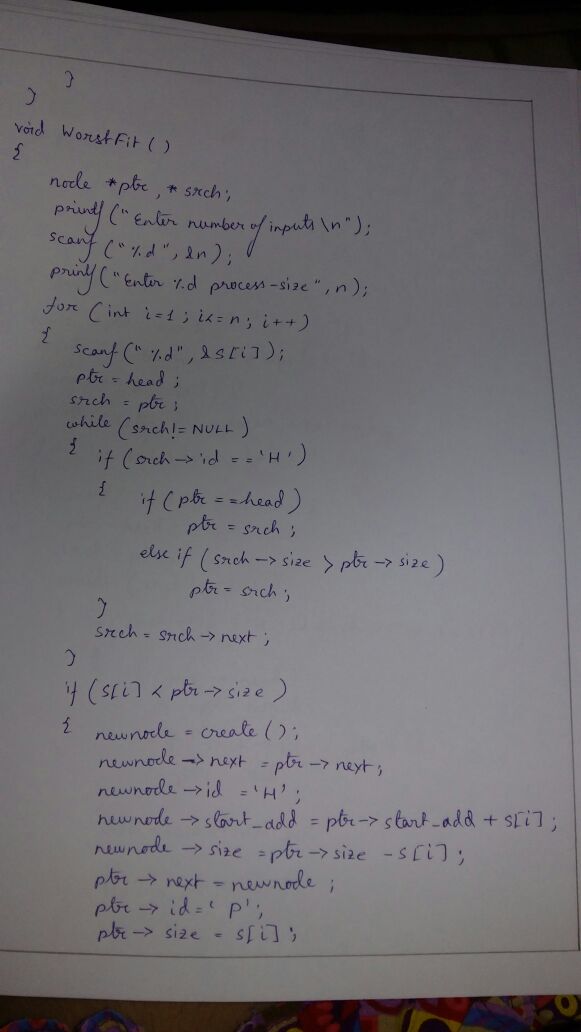 }
}
void WorstFit ( )
{
node *ptr , * srch;
printf ("Enter number of inputs \n");
scanf ("%d", &n);
printf ("Enter %d process-size", n);
for (int i=1 ; i<=n; i++)
{
scanf ("%d", &s[i]);
ptr = head ;
srch = ptr ;
while (srch!= NULL)
{ if (srch→id == 'H')
{ if (ptr ==head)
ptr = srch ;
else if (srch → size > ptr → size)
ptr = srch ;
}
srch = srch → next ;
}
if (s[i] < ptr → size )
{ newnode = create ( );
newnode → next = ptr → next;
newnode → id = 'H';
newnode → start_add = ptr → start_add + s[i] ;
newnode → size = ptr → size - s[i] ;
ptr → next = newnode ;
ptr → id = ' P';
ptr → size = s[i] ;